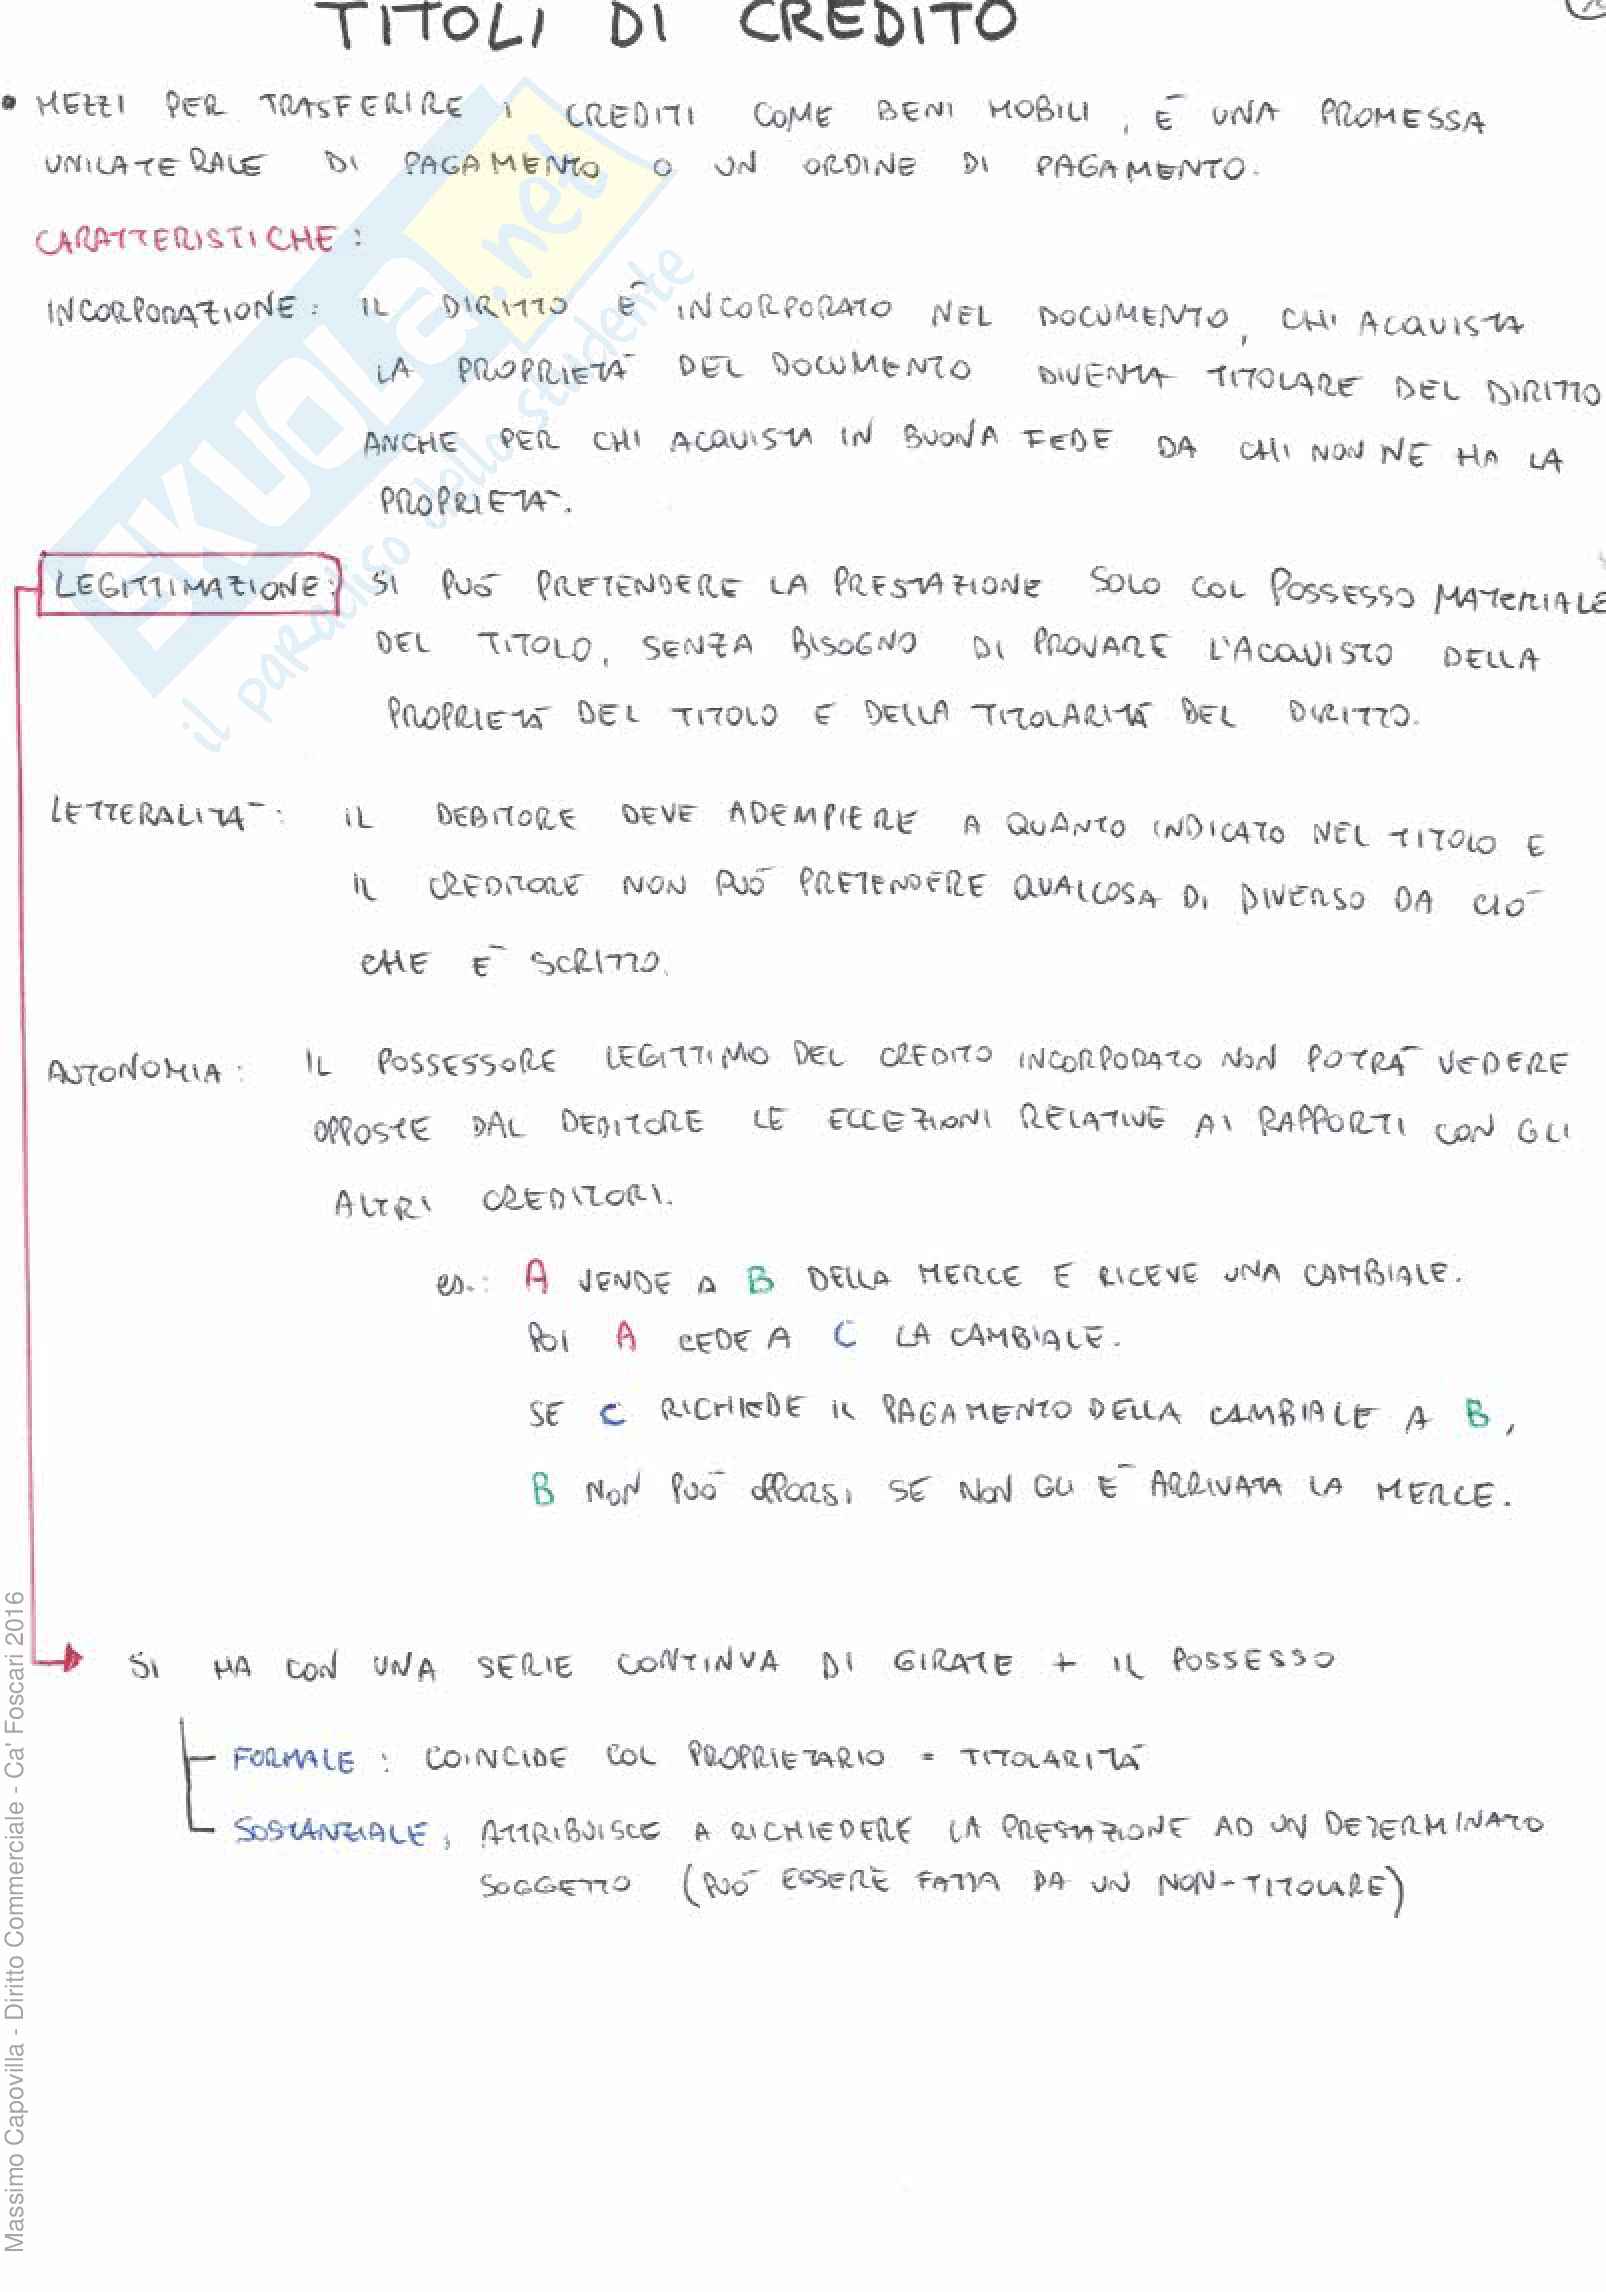 TITOLI DI CREDITO
• MEZZI PER TRASFERIRE I CREDITI COME BENI MOBILI, È UNA PROMESSA
UNILATERALE DI PAGAMENTO O UN ORDINE DI PAGAMENTO.
CARATTERISTICHE:
INCORPORAZIONE: IL DIRITTO È INCORPORATO NEL DOCUMENTO, CHI ACQUISTA
LA PROPRIETÀ DEL DOCUMENTO DIVENTA TITOLARE DEL DIRITTO
ANCHE PER CHI ACQUISTA IN BUONA FEDE DA CHI NON NE HA LA
PROPRIETÀ.
LEGITTIMAZIONE: SI PUÒ PRETENDERE LA PRESTAZIONE SOLO COL POSSESSO MATERIALE
DEL TITOLO, SENZA BISOGNO DI PROVARE L'ACQUISTO DELLA
PROPRIETÀ DEL TITOLO E DELLA TITOLARITÀ DEL DIRITTO.
LETTERALITÀ: IL DEBITORE DEVE ADEMPIERE A QUANTO INDICATO NEL TITOLO E
IL CREDITORE NON PUÒ PRETENDERE QUALCOSA DI DIVERSO DA CIÒ
CHE È SCRITTO.
AUTONOMIA: IL POSSESSORE LEGITTIMO DEL CREDITO INCORPORATO NON POTRÀ VEDERE
OPPOSTE DAL DEBITORE LE ECCEZIONI RELATIVE AI RAPPORTI CON GLI
ALTRI CREDITORI.
es.: A VENDE A B DELLA MERCE E RICEVE UNA CAMBIALE.
POI A CEDE A C LA CAMBIALE.
SE C RICHIEDE IL PAGAMENTO DELLA CAMBIALE A B,
B NON PUÒ OPPORSI SE NON GLI È ARRIVATA LA MERCE.
SI HA CON UNA SERIE CONTINUA DI GIRATE + IL POSSESSO
FORMALE: COINCIDE COL PROPRIETARIO = TITOLARITÀ
SOSTANZIALE: ATTRIBUISCE A RICHIEDERE LA PRESTAZIONE AD UN DETERMINATO
SOGGETTO (PUÒ ESSERE FATTA DA UN NON-TITOLARE)
SKUOLA.net
il paradiso dello studente
Massimo Capovilla - Diritto Commerciale - Ca' Foscari 2016